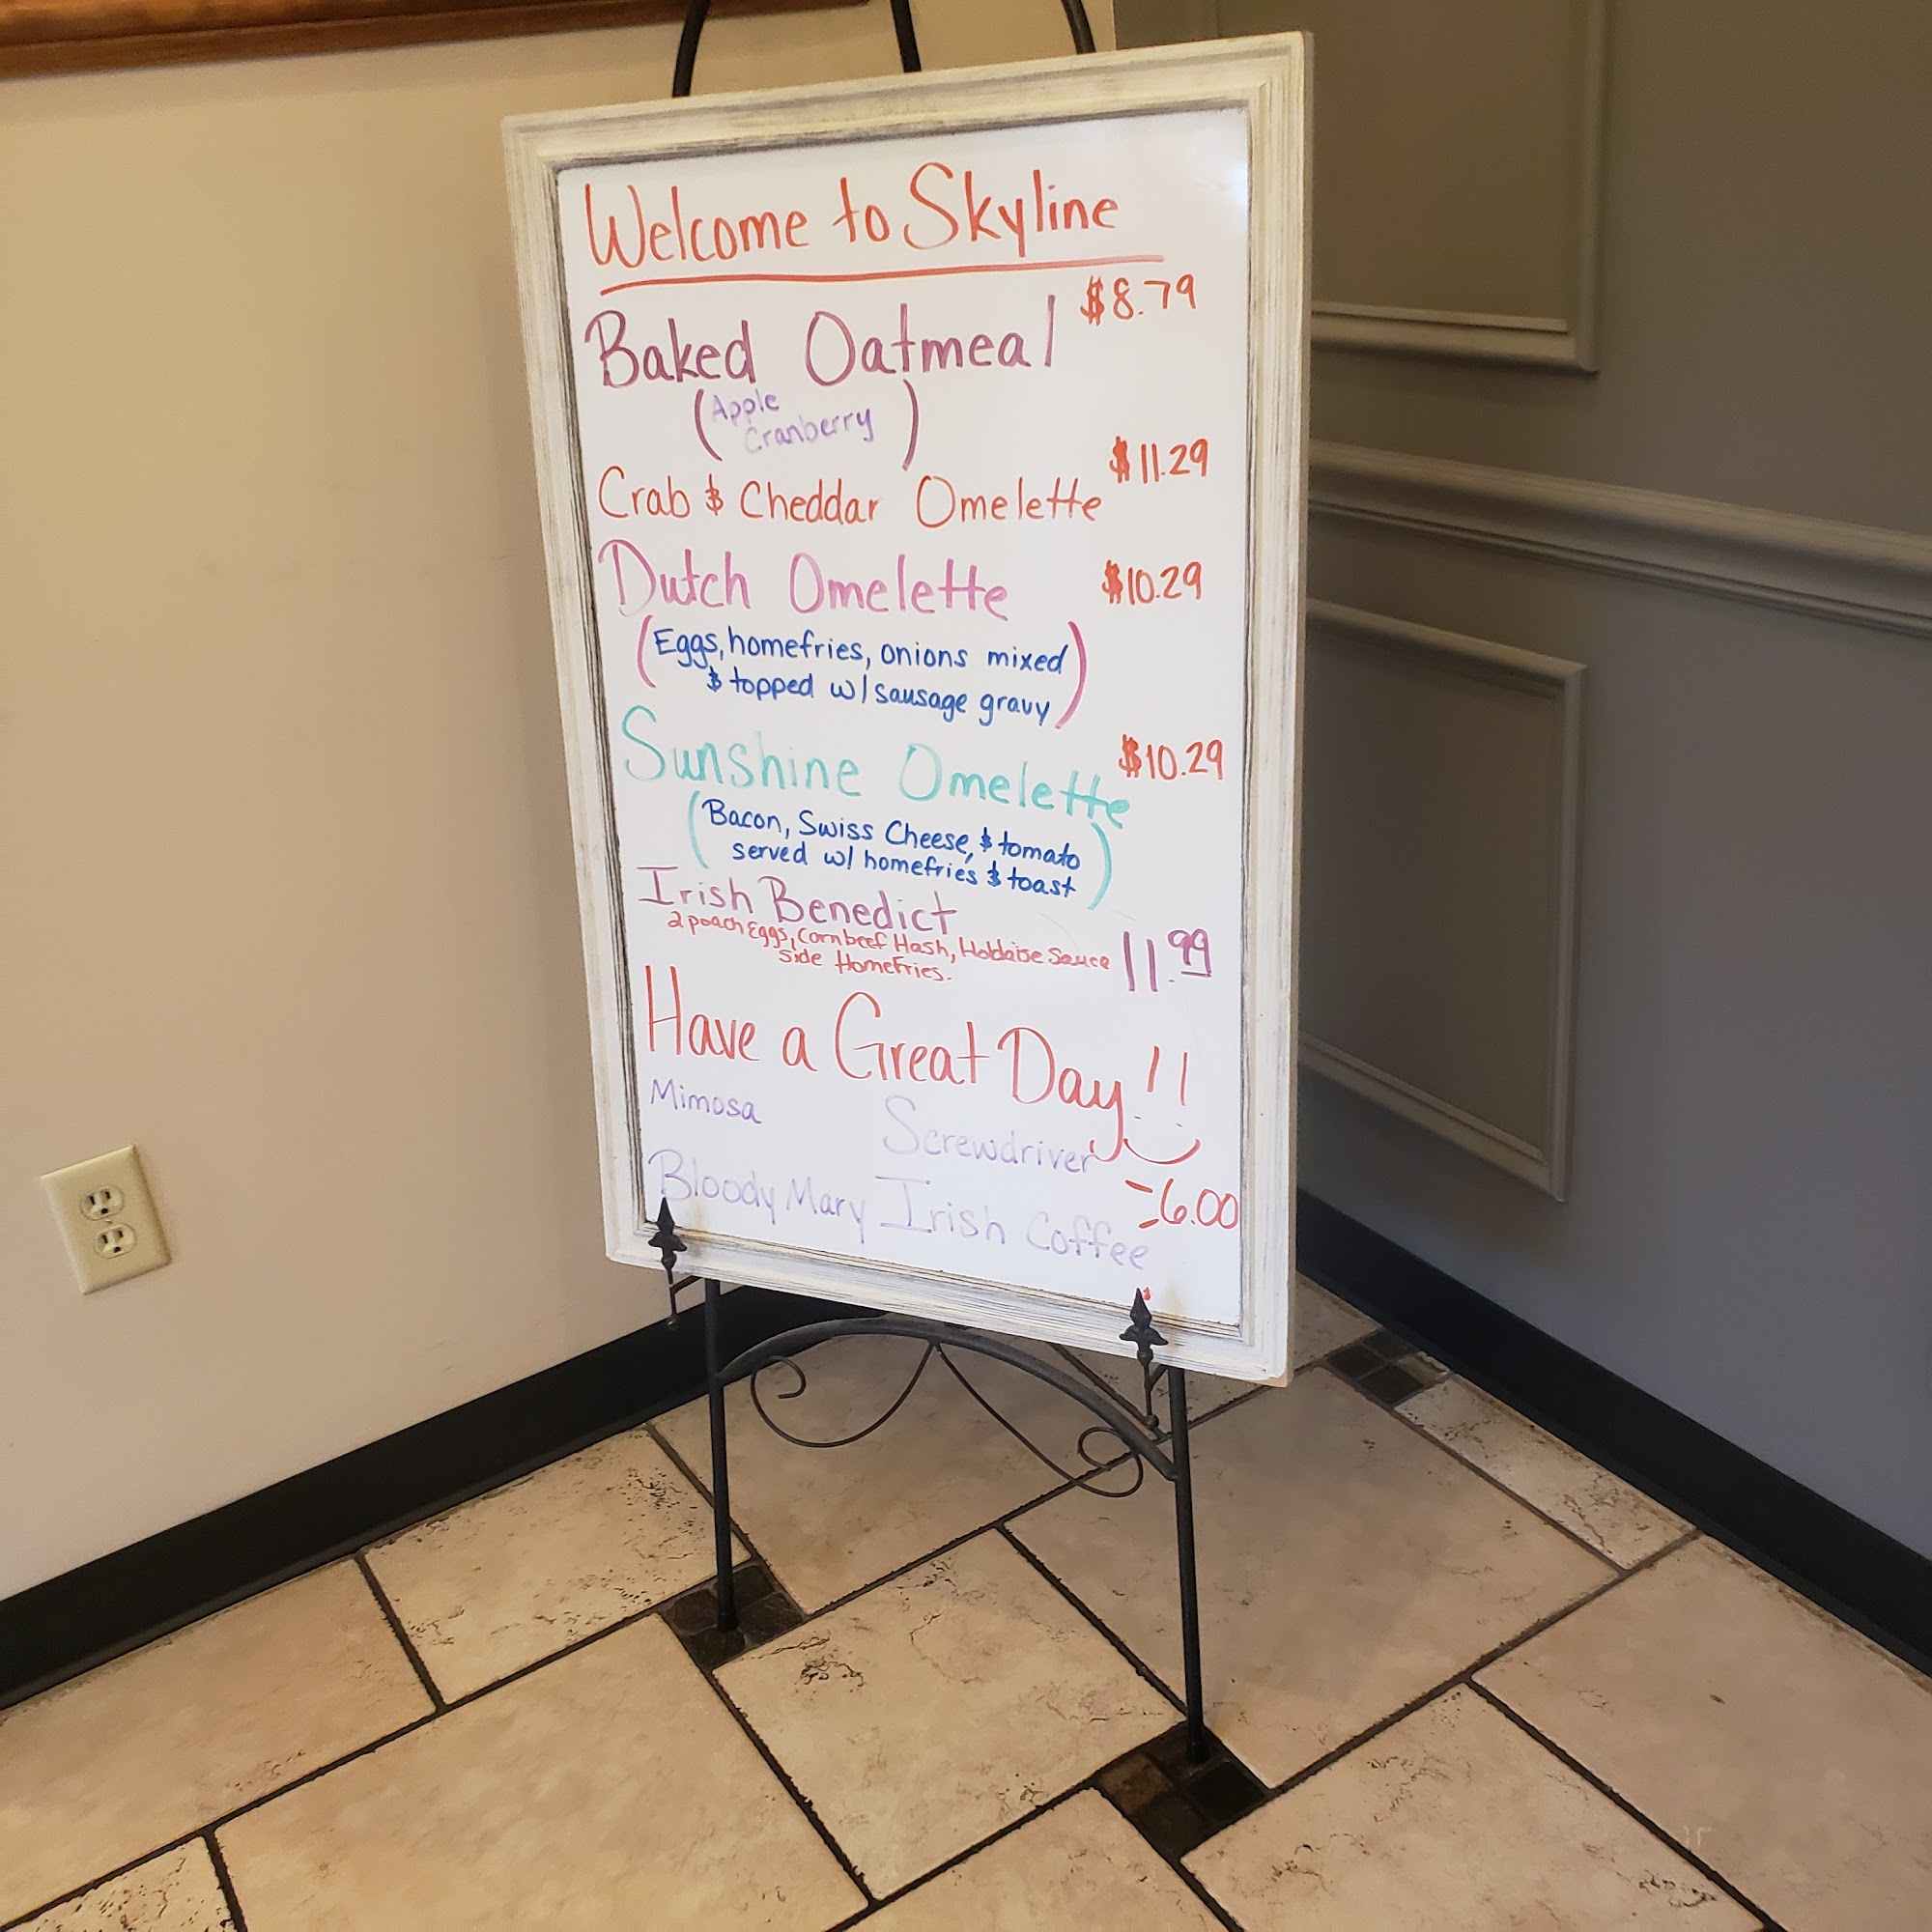 Welcome to Skyline
Baked Oatmeal $8.79
(Apple
Cranberry)
Crab & Cheddar Omelette $11.29
Dutch Omelette $10.29
(Eggs, homefries, onions mixed
& topped w/ sausage gravy)
Sunshine Omelette $10.29
(Bacon, Swiss Cheese, & tomato
served w/ homefries & toast)
Irish Benedict
2 poach Eggs, Cornbeef Hash, Holdaise Sauce 11.99
Side HomeFries.
Have a Great Day!!
Mimosa Screwdriver
Bloody Mary Irish Coffee =6.00